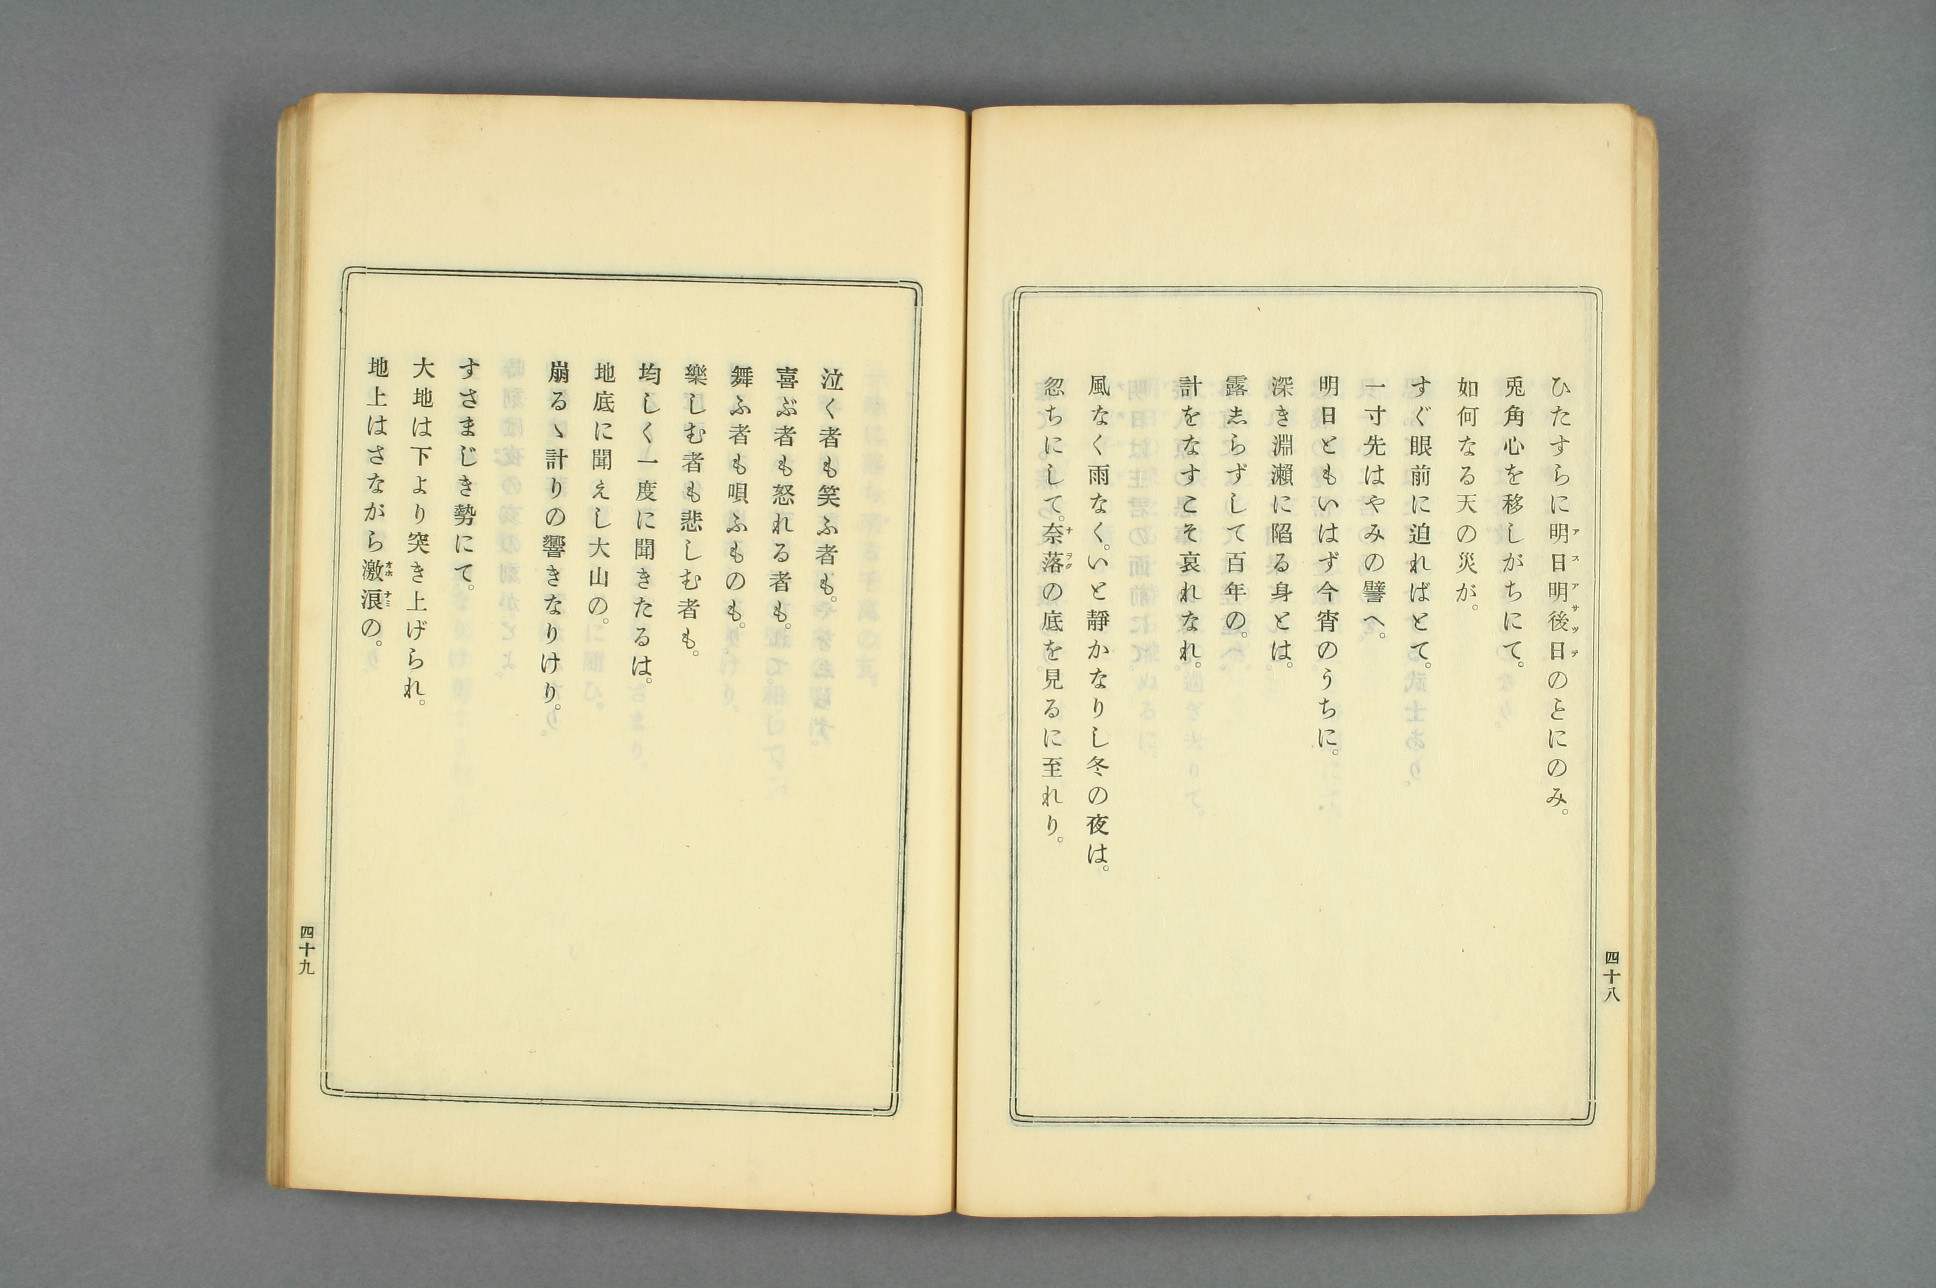 ひたすらに明日明後日のとにのみ。
兎角心を移しがちにて。
如何なる天の災が。
すぐ眼前に迫ればとて。
一寸先はやみの譬へ。
明日ともいはず今宵のうちに。
深き淵瀬に陷る身とは。
露志らずして百年の。
計をなすこそ哀れなれ。
風なく雨なく。いと靜かなりし冬の夜は。
忽ちにして。奈落の底を見るに至れり。
四十八
泣く者も笑ふ者も。
喜ぶ者も怒れる者も。
舞ふ者も唄ふものも。
樂しむ者も悲しむ者も。
均しく一度に聞きたるは。
地底に聞えし大山の。
崩るゝ計りの響きなりけり。
すさまじき勢にて。
大地は下より突き上げられ。
地上はさながら激浪の。
四十九